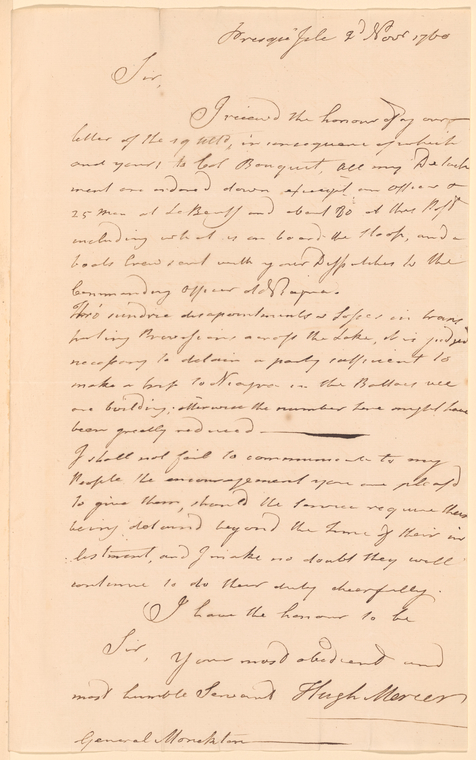 Presqu' Isle 2d Novr 1760
Sir,
I receivd the honour of your
letter of the 19 Ulto, in consequence of which
and yours to Col Bouquet, all my Detach
ment are orderd down, except an officer &
25 men at Le Beuff and about 80 at this Post
including what is on board the Sloop, and a
boats Crew sent with your Dispatches to the
Commanding Officer at Niagra.
Thro' sundrie disapointments & losses in trans
porting Provisions across the Lake, it is judged
necessary to detain a party sufficient to
make a trip to Niagra in the Battoes we
are building, otherwise the number here might have
been greatly reduced
I shall not fail to communicate to my
People the encouragement you are pleasd
to give them, should the Service require their
being detaind beyond the time of their in
listment, and I make no doubt they will
continue to do their duty cheerfully.
I have the honour to be
Sir, your most obedient and
most humble Servant Hugh Mercer
General Monckton